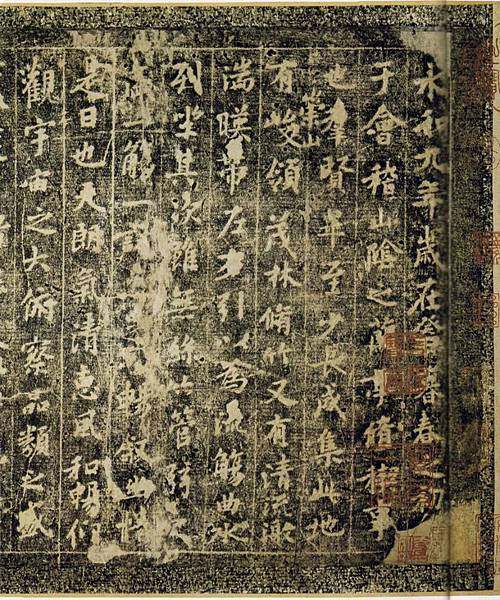 永和九年歲在癸丑暮春之初
于會稽山陰之蘭亭脩禊事
也羣賢畢至少長咸集此地
有崇山峻領茂林脩竹又有清流激
湍暎帶左右引以為流觴曲水
列坐其次雖無絲竹管弦之
盛一觴一詠暢叙幽情
是日也天朗氣清惠風和暢仰
觀宇宙之大俯察品類之盛